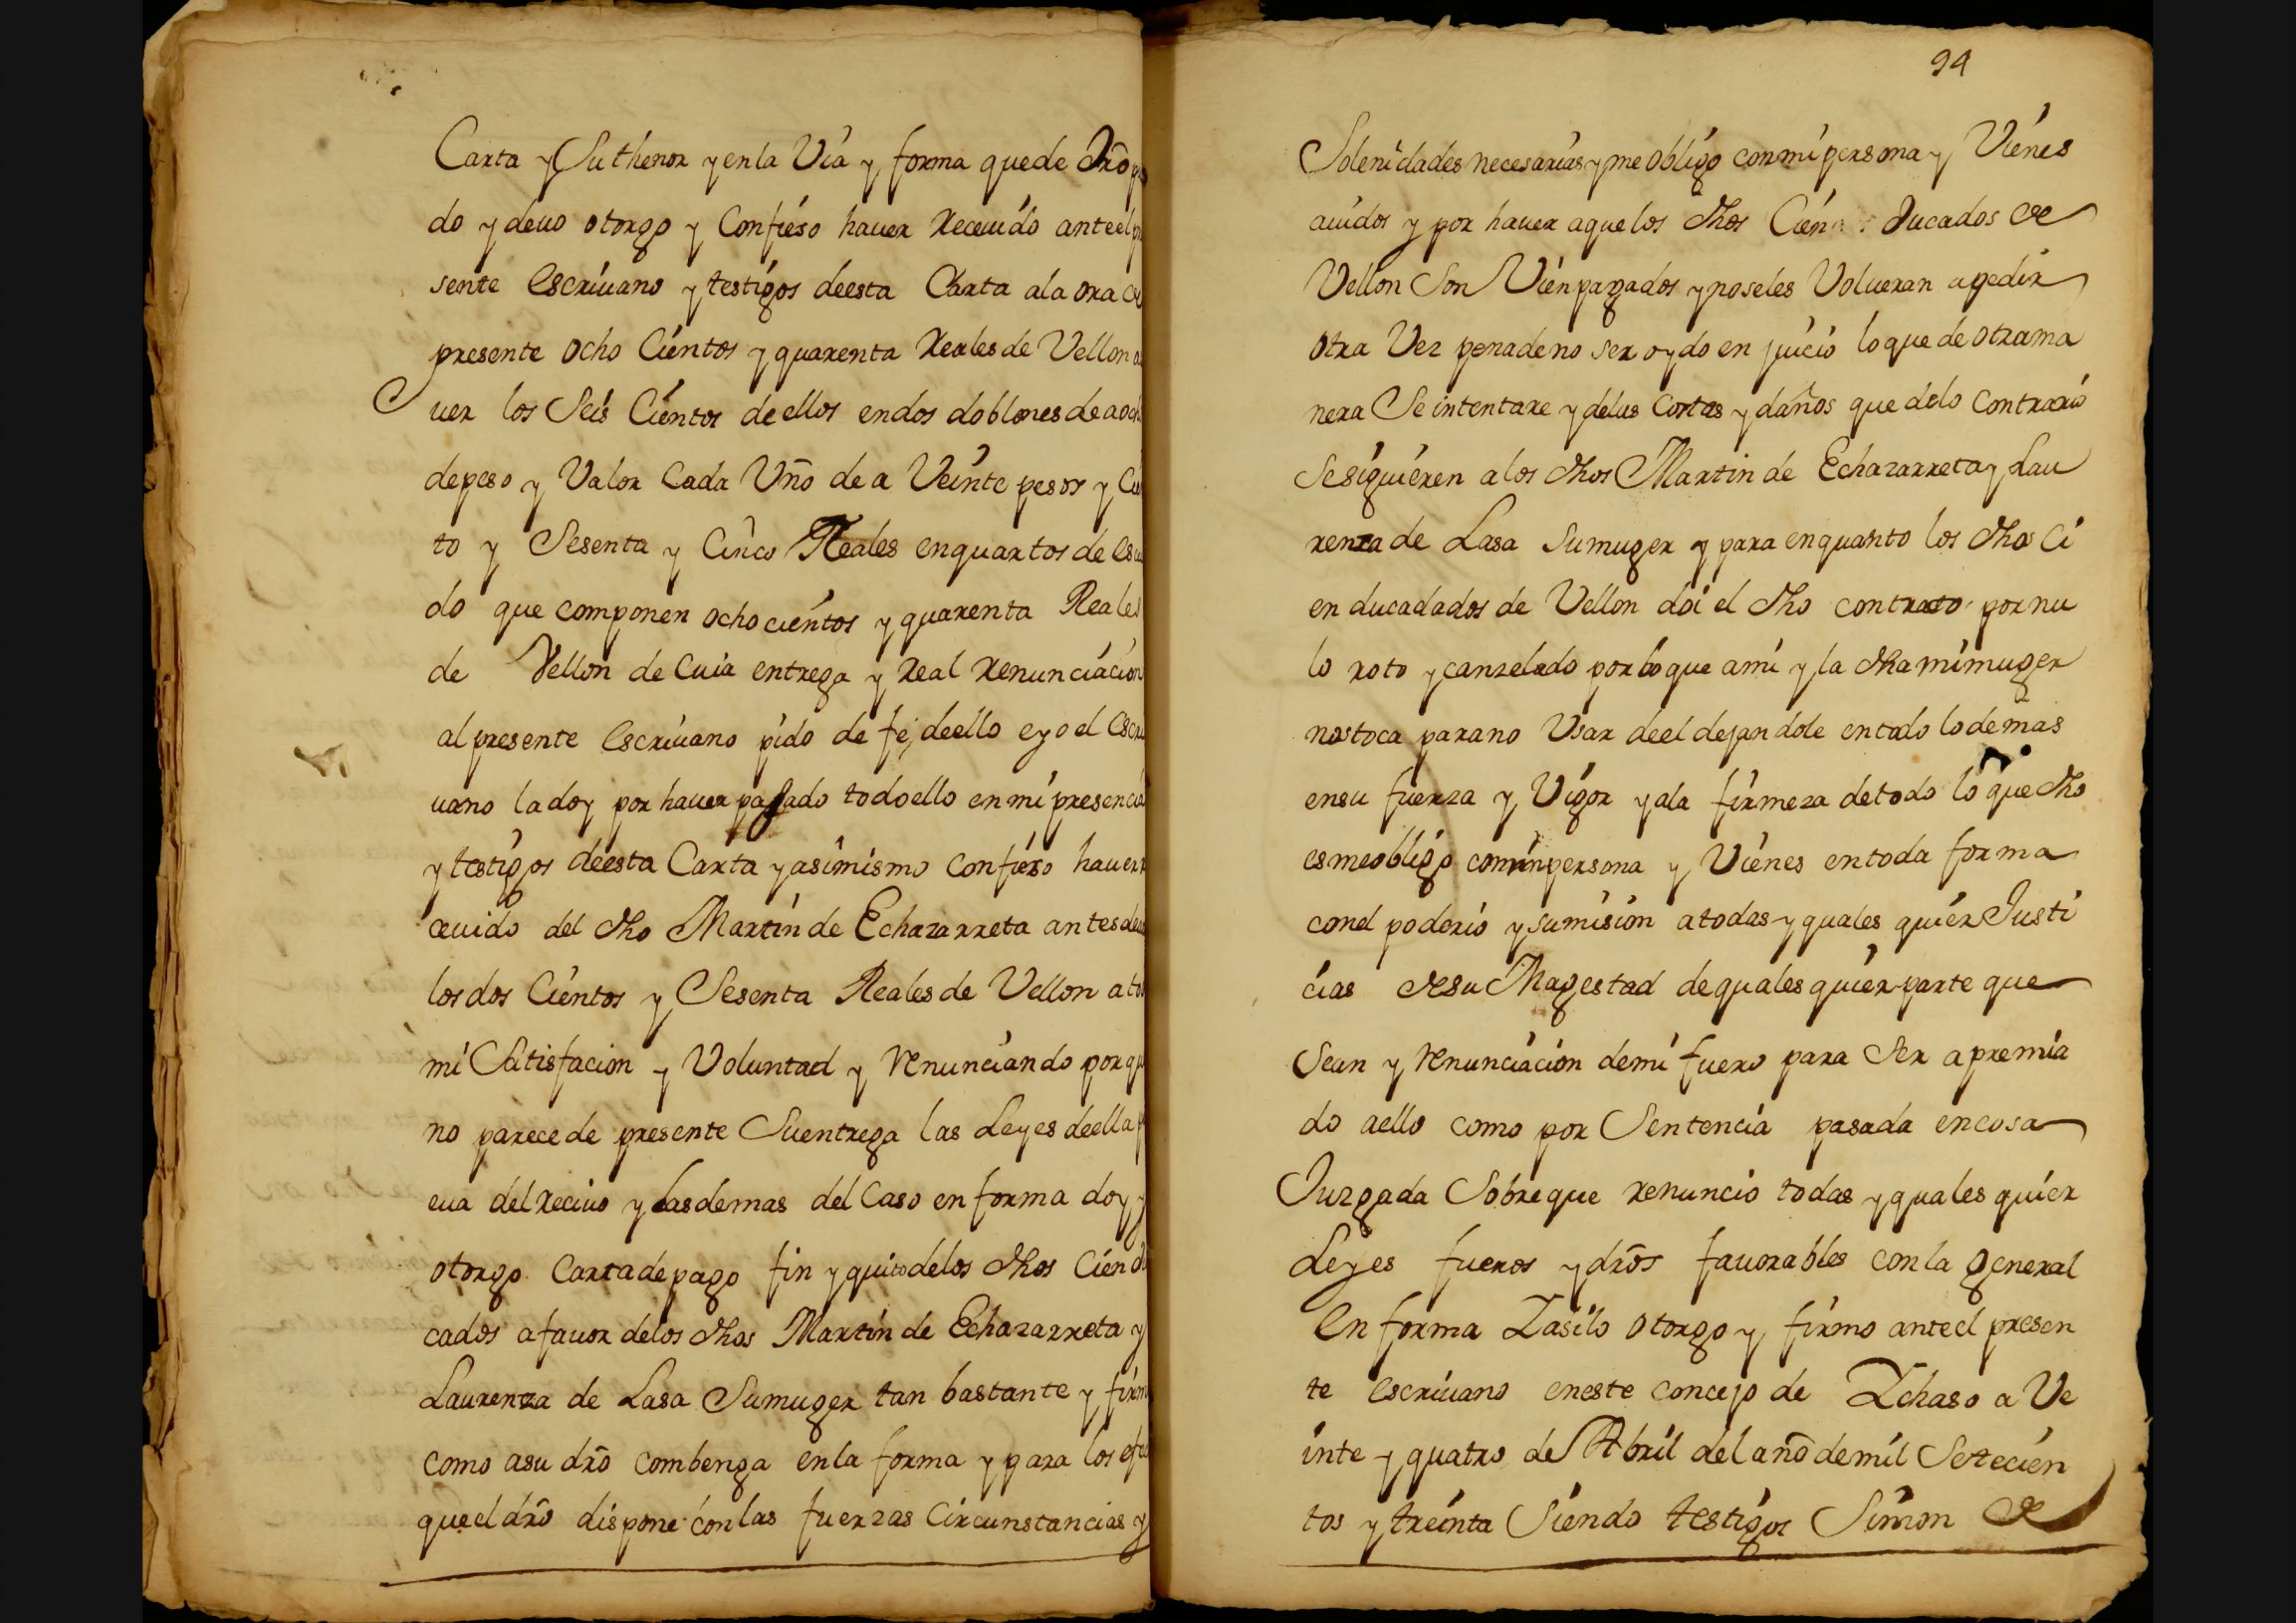 Carta y Su thenor y en la Via y forma que de Dr̃o p
do y deuo otorgo y Confieso hauer Receuido ante el p
sente escriuano y testigos de esta Carta a la ora de
presente ocho Cientos y quarenta Reales de Vellon a
uer los Seis Cientos de ellos en dos doblones de a och
de peso y Valor Cada Vno de a Veinte pesos y Ci
to y Sesenta y Cinco Reales en quartos de escu
do que componen ocho cientos y quarenta Reales
de Vellon de Cuia entrega y Real Renunciacion
al presente escriuano pido de fe, de ello e yo el escri
uano la doy por hauer pasado todo ello en mi presencia
y testigos de esta Carta y asimismo Confieso hauer r
ceuido del dho Martin de Echazarreta antes de
los dos Cientos y Sesenta Reales de Vellon a to
mi Satisfacion y Voluntad y renunciando por qu
no parece de presente Su entrega las Leyes de ella p
eua del Reciuo y las demas del Caso en forma doy y
otorgo Carta de pago fin y quito de los dhos Cien du
cados a fauor de los dhos Martin de Echazarreta y
Laurenza de Lasa Su muger tan bastante y firm
como a su dr̃o combenga en la forma y para los efe
que el dr̃o dispone con las fuerzas Circunstancias y
94
Solenidades necesarias y me obligo con mi persona y Vienes
auidos y por hauer a que los dhos Cien Ducados de
Vellon Son Vien pagados y no seles Volueran a pedir
otra Vez pena de no ser oydo en juicio lo que de otra ma
nera Se intentare y de las Costas y daños que delo Contrario
Se siguieren a los dhos Martin de Echazarreta y Lau
renza de Lasa Su muger y para en quanto los dhos Ci
en ducadados de Vellon doi el dho contrato por nu
lo roto y canzelado por lo que a mi y la dha mi muger
nos toca para no Vsar de el dejandole en todo lo demas
en su fuerza y Vigor y a la firmeza de todo lo que dho
es me obligo con min persona y Vienes en toda forma
con el poderio y sumision a todas y quales quier Justi
cias de su Magestad de quales quier parte que
Sean y renunciacion de mi fuero para Ser apremia
do a ello como por Sentencia pasada en cosa
Juzgada Sobre que renuncio todas y quales quier
Leyes fueros y dr̃os fauorables con la general
en forma Y asi lo otorgo y firmo ante el presen
te escriuano en este concejo de Ychaso a Ve
inte y quatro de Abril del año de mil Setecien
tos y treinta Siendo testigos Simon de